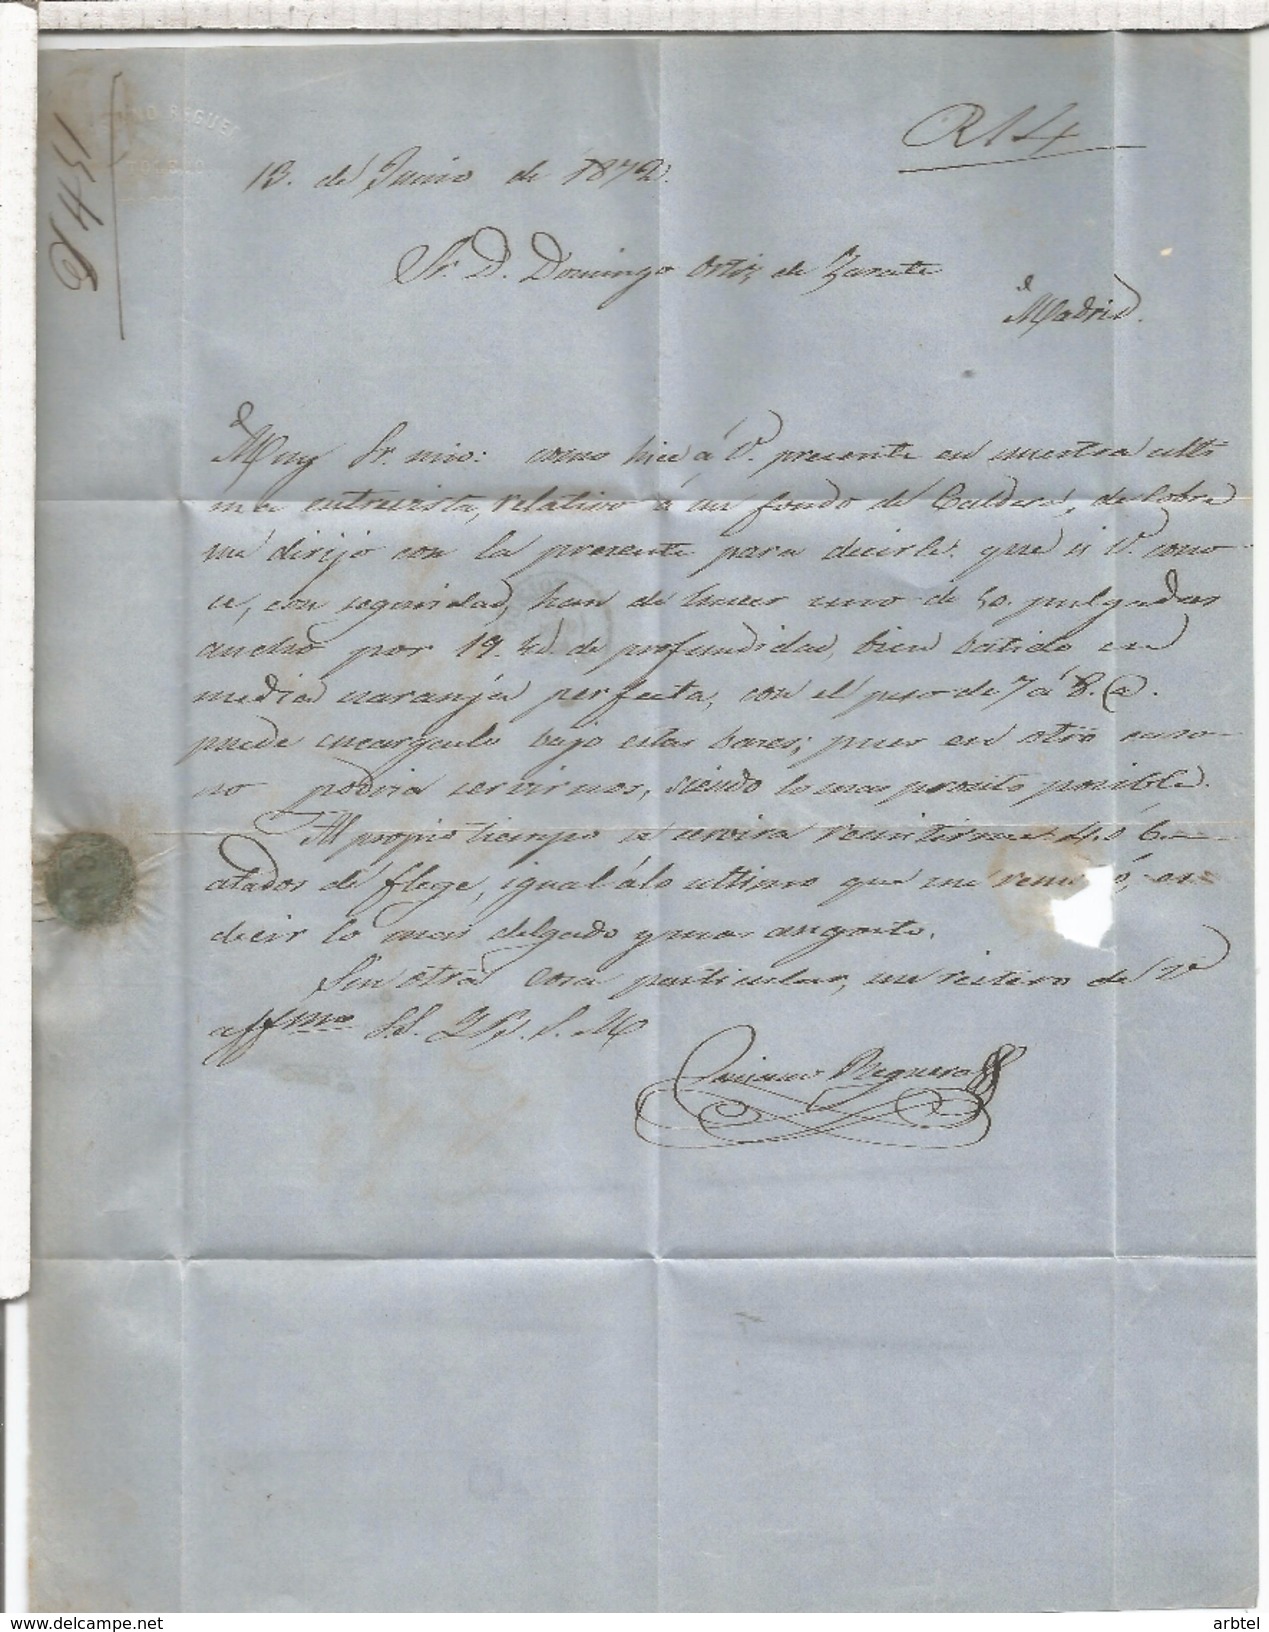 R 14
13. de Junio de 1872.
Sr. D. Domingo Ortiz de Zarate
Madrid.
Muy Sr. mio: como hice á V. presente en nuestra ulti
ma entrevista, relativo á un fondo de Caldera, de Cobre
me dirijo con la presente para decirle que si V. cono-
ce, con seguridad, han de hacer uno de 50. pulgadas
ancho por 19. id. de profundidad, bien batido en
media naranja perfecta, con el peso de 7 á 8. @.
puede encargarlo bajo estas bases; pues en otro caso
no podria servirnos, siendo lo mas pronto posible.
Al propio tiempo se servira remitirme 4. ó 6
atados de flege, igual álo ultimo que me remitió, es
decir lo mas delgado y mas angosto.
Sin otra cosa particular, me reitero de V.
affmo S.S. Q. B. S. M
Reguera
arbtel